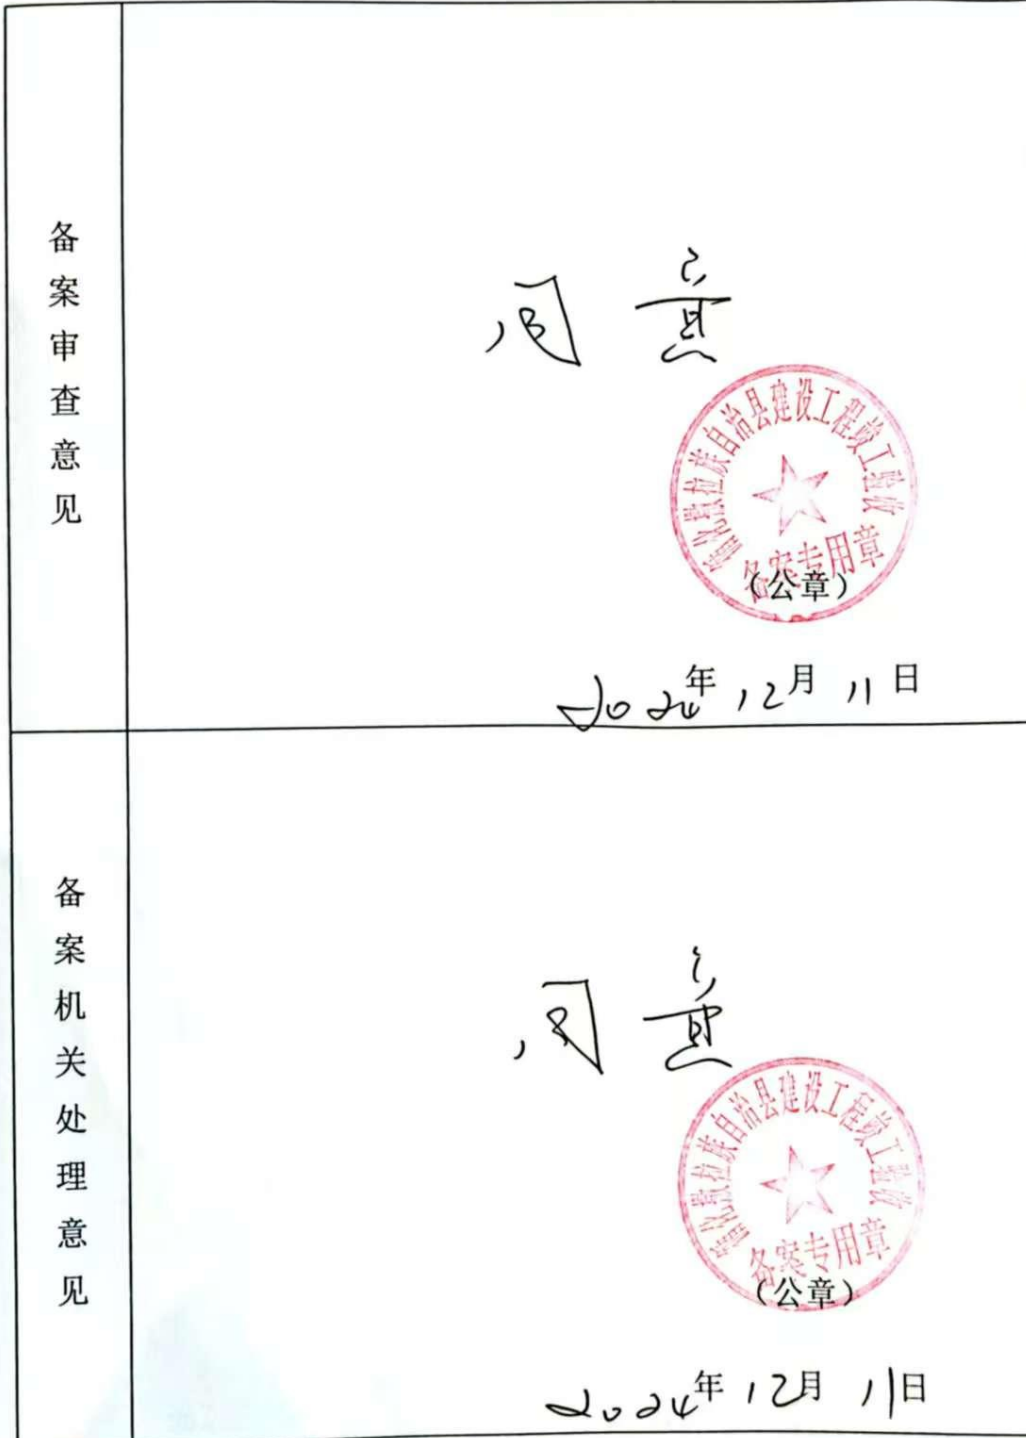 备案审查意见
同意
循化撒拉族自治县建设工程竣工验收
备案专用章
(公章)
2024年12月11日
备案机关处理意见
同意
循化撒拉族自治县建设工程竣工验收
备案专用章
(公章)
2024年12月11日